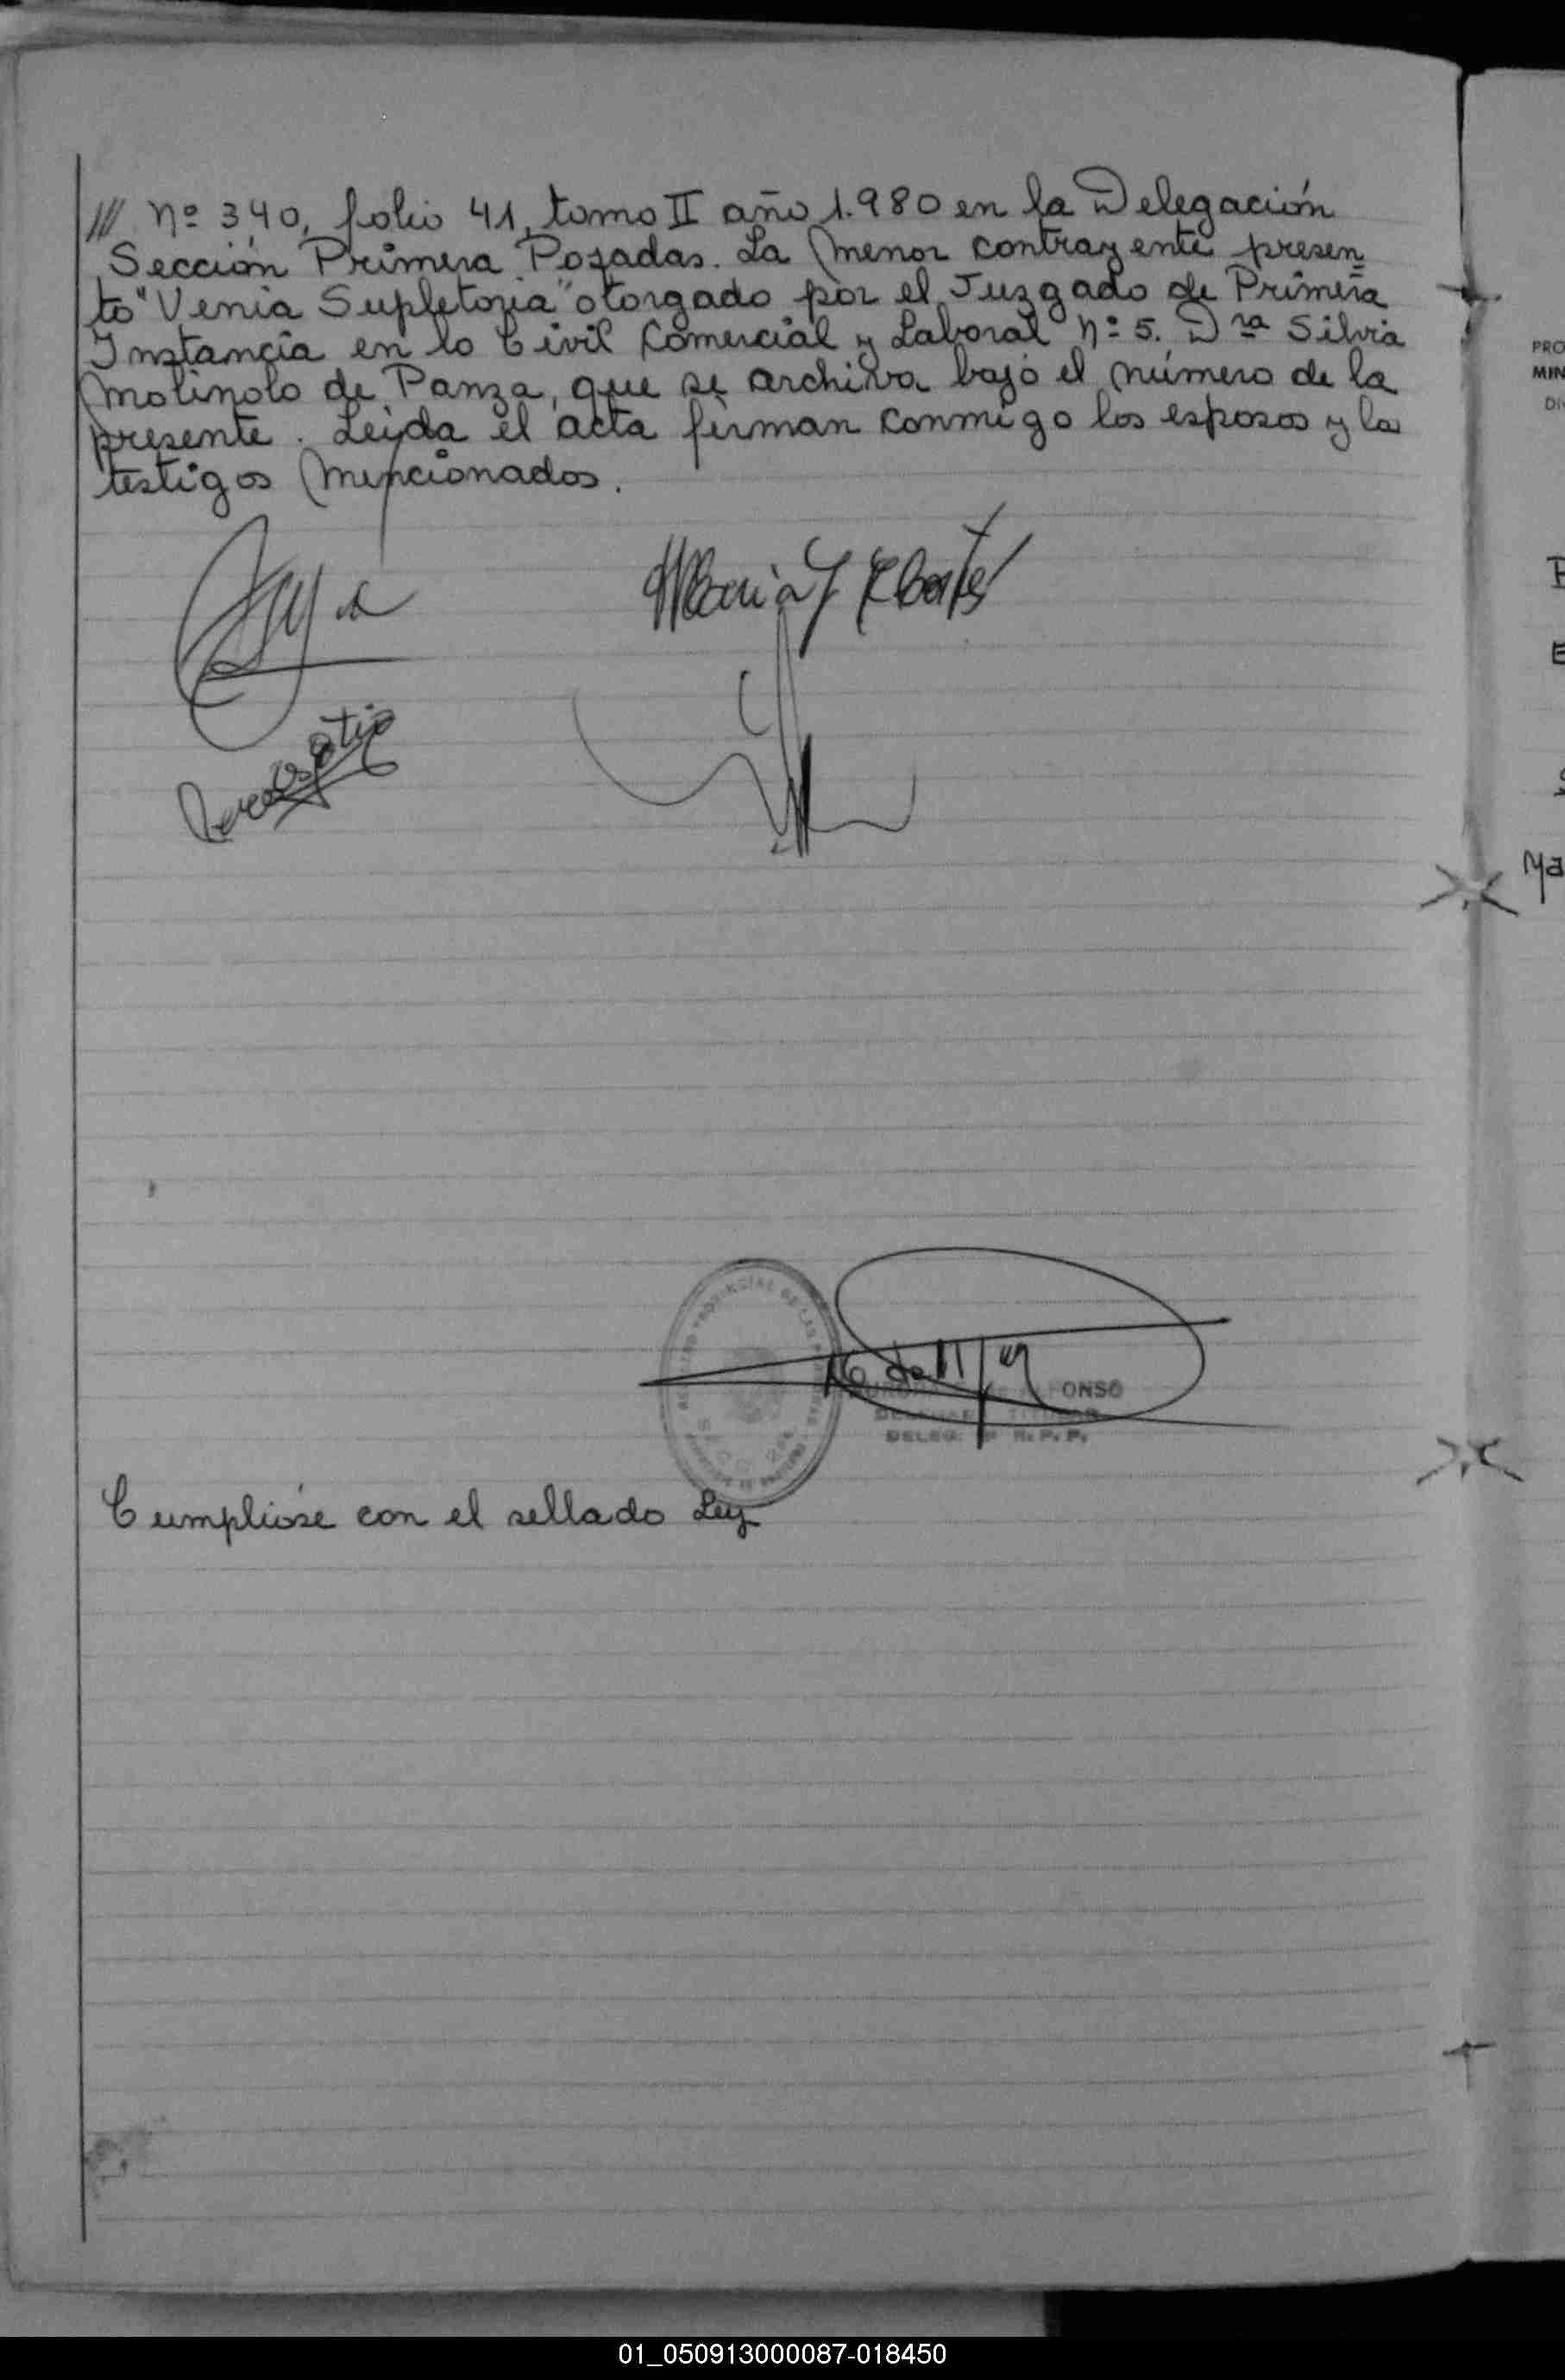 /// Nº 340, folio 41, tomo II año 1.980 en la Delegación
Sección Primera Posadas. La menor contrayente presen=
to "Venia Supletoria" otorgado por el Juzgado de Primera
Instancia en lo Civil Comercial y Laboral Nº 5. Dra Silvia
Molinolo de Panza, que se archiva bajo el número de la
presente. Leída el acta firman conmigo los esposos y los
testigos mencionados.
Maria
REGISTRO PROVINCIAL DE LAS PERSONAS
SECC.
FONSO
DELEG. R.P.P.
Cumplióse con el sellado Ley
PRO
MIN
DI
01_050913000087-018450